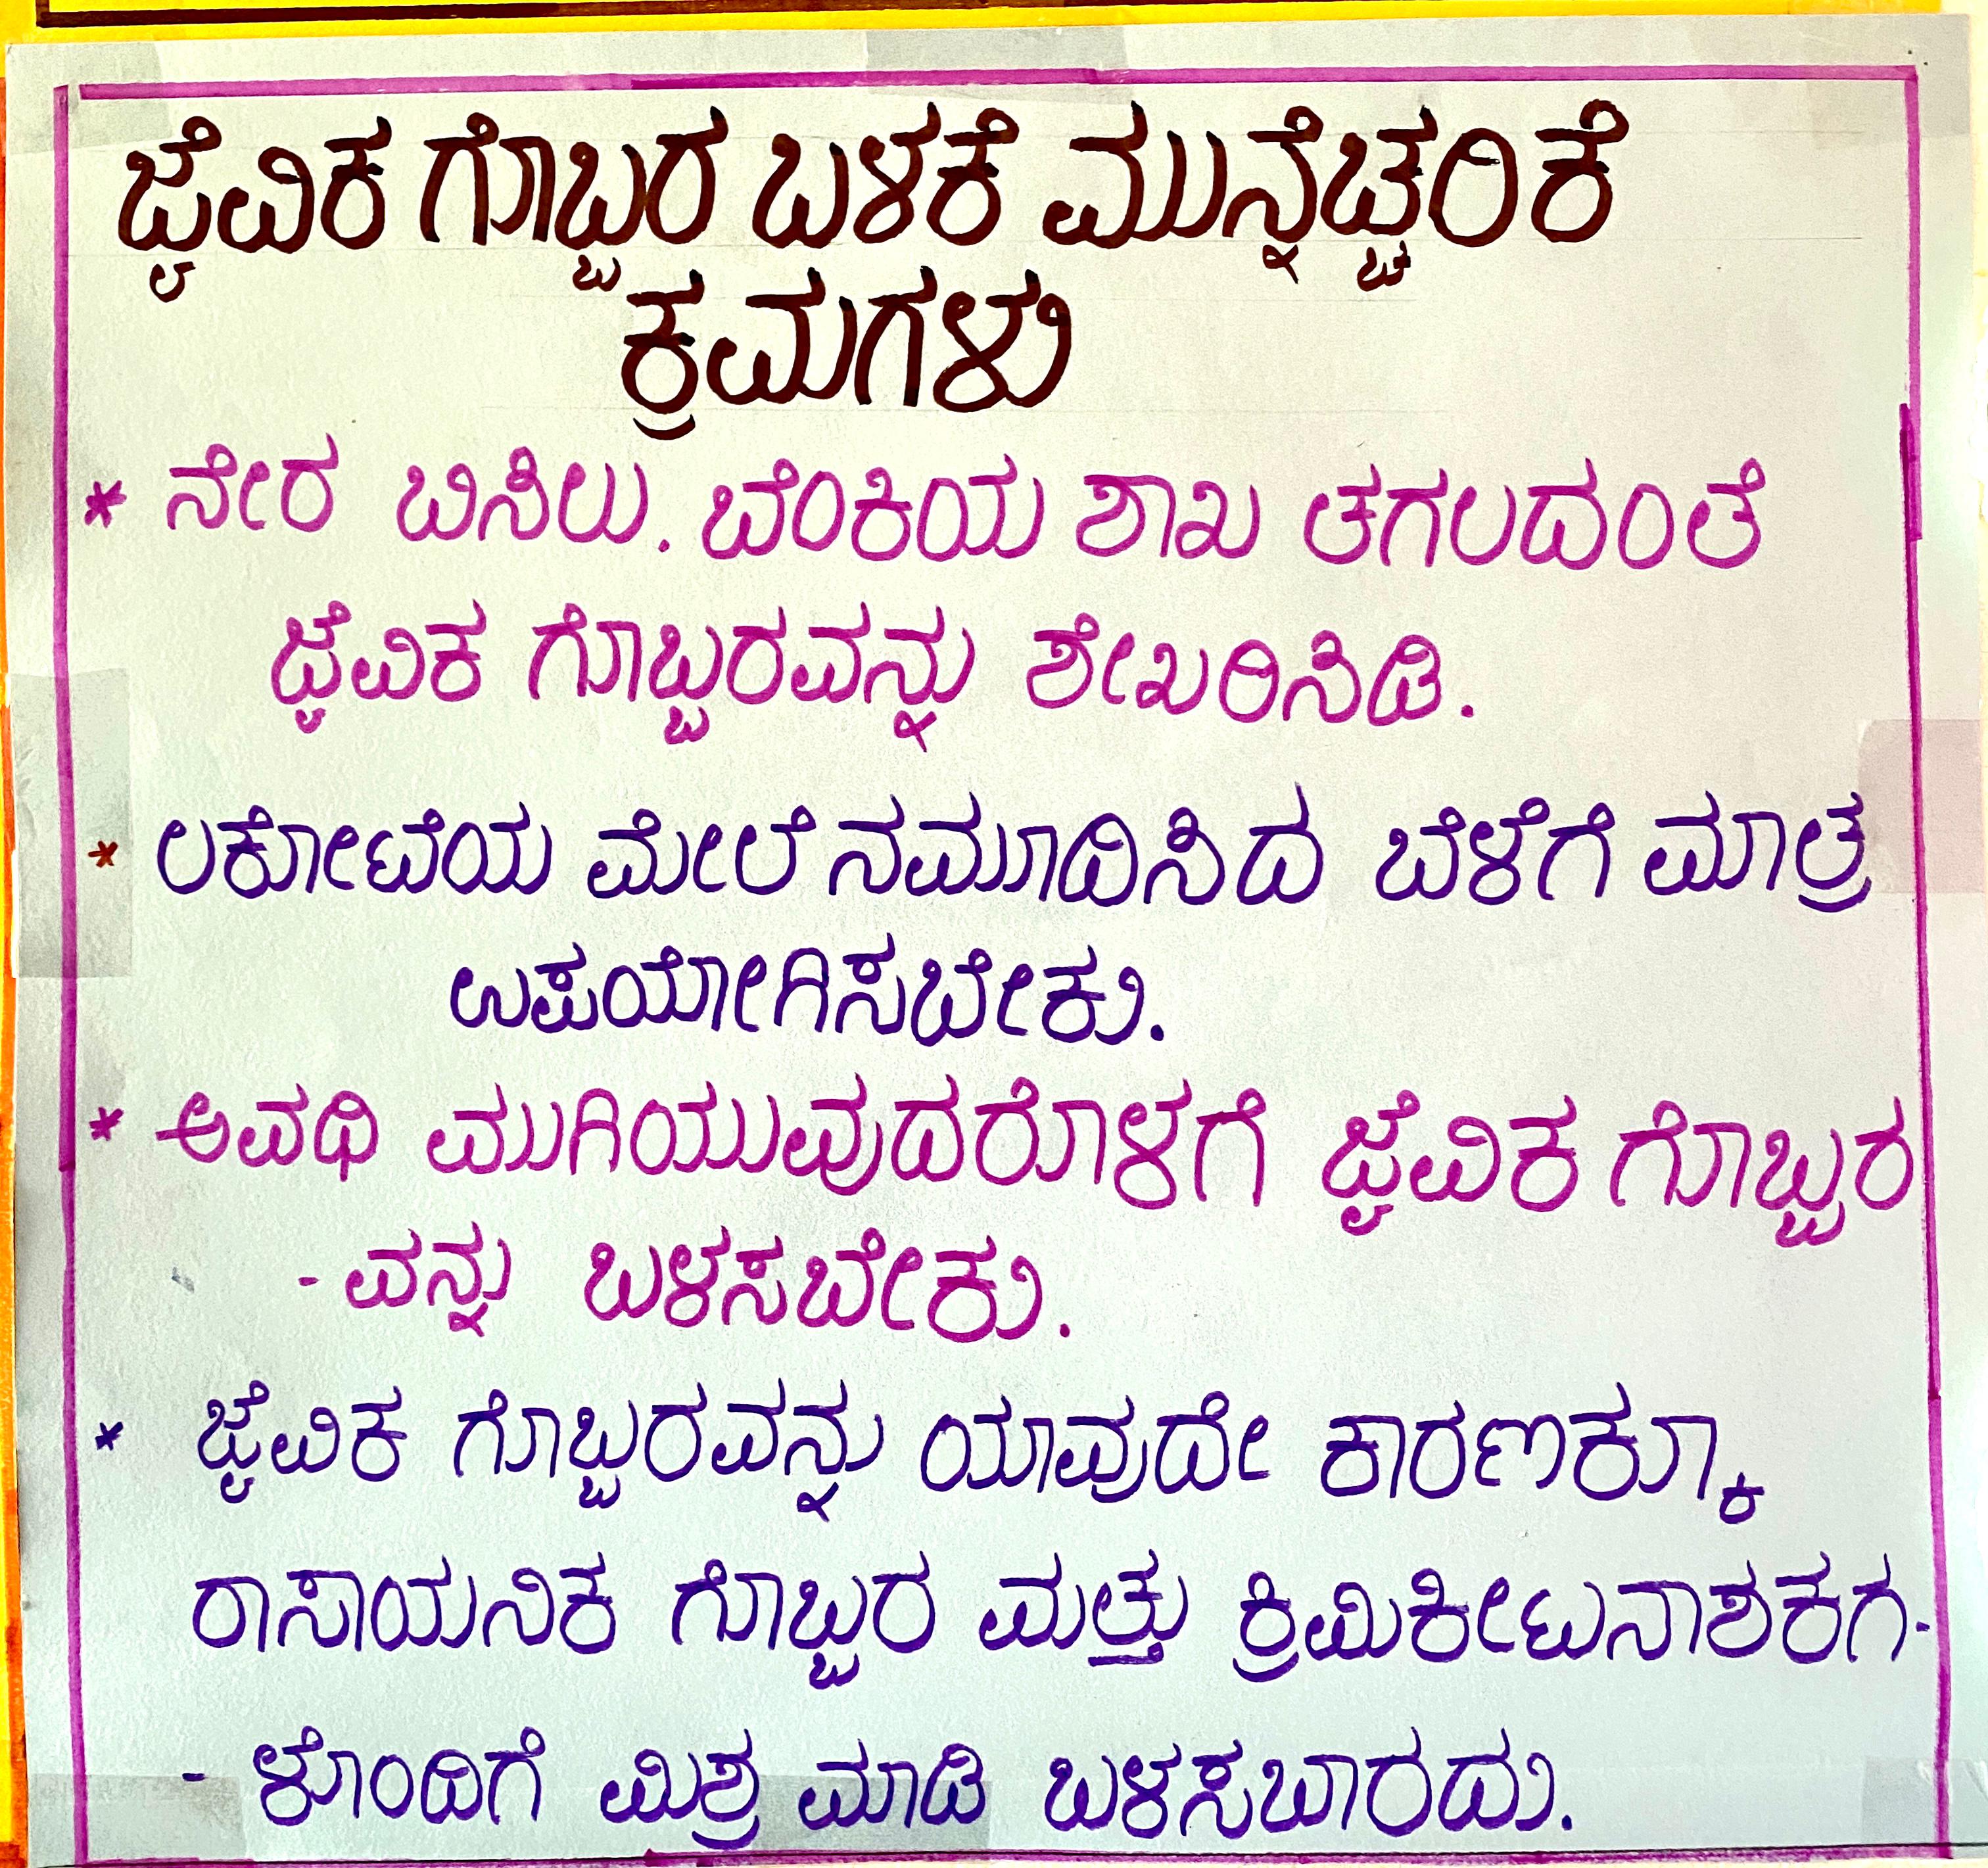 ಜೈವಿಕ ಗೊಬ್ಬರ ಬಳಕೆ ಮುನ್ನೆಚ್ಚರಿಕೆ
ಕ್ರಮಗಳು
* ನೇರ ಬಿಸಿಲು. ಬೆಂಕಿಯ ಶಾಖ ತಗಲದಂತೆ
ಜೈವಿಕ ಗೊಬ್ಬರವನ್ನು ಶೇಖರಿಸಿಡಿ.
* ಲಕೋಟೆಯ ಮೇಲೆ ನಮೂದಿಸಿದ ಬೆಳೆಗೆ ಮಾತ್ರ
ಉಪಯೋಗಿಸಬೇಕು.
* ಅವಧಿ ಮುಗಿಯುವುದರೊಳಗೆ ಜೈವಿಕ ಗೊಬ್ಬರ
-ವನ್ನು ಬಳಸಬೇಕು.
* ಜೈವಿಕ ಗೊಬ್ಬರವನ್ನು ಯಾವುದೇ ಕಾರಣಕ್ಕೂ
ರಾಸಾಯನಿಕ ಗೊಬ್ಬರ ಮತ್ತು ಕ್ರಿಮಿಕೀಟನಾಶಕಗ-
- ಳೊಂದಿಗೆ ಮಿಶ್ರ ಮಾಡಿ ಬಳಸಬಾರದು.